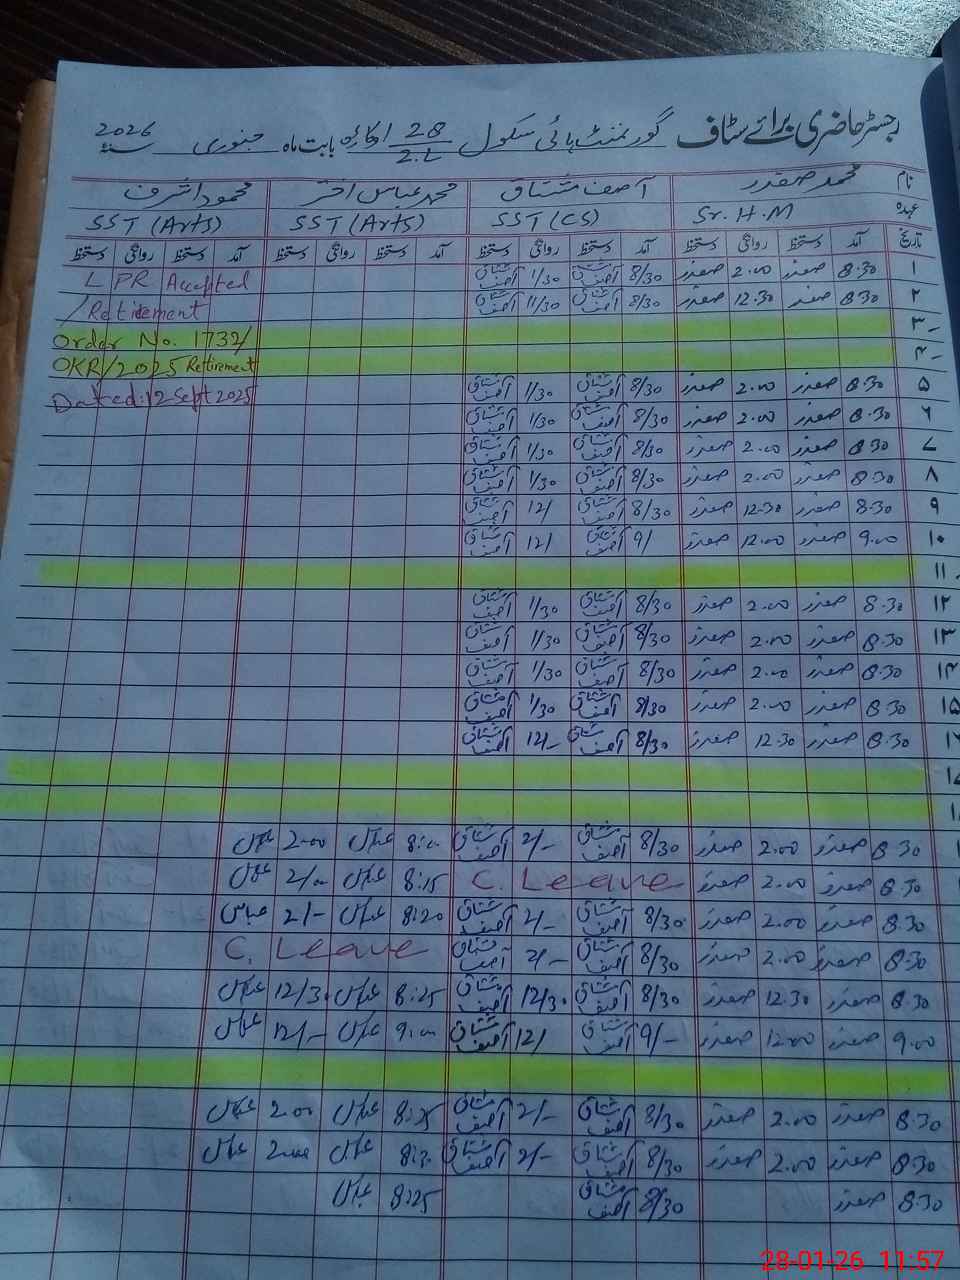 رجسٹر حاضری برائے سٹاف گورنمنٹ ہائی سکول 28/2.L اوکاڑہ بابت ماہ جنوری سنہ 2026
نام محمد صفدر آصف مشتاق محمد عباس اختر محمود اشرف
عہدہ Sr. H.M SST (CS) SST (Arts) SST (Arts)
تاریخ آمد دستخط روانگی دستخط آمد دستخط روانگی دستخط آمد دستخط روانگی دستخط آمد دستخط روانگی دستخط
۱ 8.30 صفدر 2.00 صفدر 8/30 آصف مشتاق 1/30 آصف مشتاق LPR Accepted
۲ 8.30 صفدر 12.30 صفدر 8/30 آصف مشتاق 11/30 آصف مشتاق /Retirement
۳ Order No. 1732/
۴ OKR/2025 Retirement
۵ 8.30 صفدر 2.00 صفدر 8/30 آصف مشتاق 1/30 آصف مشتاق Dated: 12 Sept 2025
۶ 8.30 صفدر 2.00 صفدر 8/30 آصف مشتاق 1/30 آصف مشتاق
۷ 8.30 صفدر 2.00 صفدر 8/30 آصف مشتاق 1/30 آصف مشتاق
۸ 8.30 صفدر 2.00 صفدر 8/30 آصف مشتاق 1/30 آصف مشتاق
۹ 8.30 صفدر 12.30 صفدر 8/30 آصف مشتاق 12/ آصف مشتاق
۱۰ 9.00 صفدر 12.00 صفدر 9/ آصف مشتاق 12/ آصف مشتاق
۱۱
۱۲ 8.30 صفدر 2.00 صفدر 8/30 آصف مشتاق 1/30 آصف مشتاق
۱۳ 8.30 صفدر 2.00 صفدر 8/30 آصف مشتاق 1/30 آصف مشتاق
۱۴ 8.30 صفدر 2.00 صفدر 8/30 آصف مشتاق 1/30 آصف مشتاق
۱۵ 8.30 صفدر 2.00 صفدر 8/30 آصف مشتاق 1/30 آصف مشتاق
۱۶ 8.30 صفدر 12.30 صفدر 8/30 آصف مشتاق 12/- آصف مشتاق
۱۷
۱۸
8.30 صفدر 2.00 صفدر 8/30 آصف مشتاق 2/- آصف مشتاق 8:00 عباس 2.00 عباس
8.30 صفدر 2.00 صفدر C. Leave 8:15 عباس 2/00 عباس
8.30 صفدر 2.00 صفدر 8/30 آصف مشتاق 2/- آصف مشتاق 8:20 عباس 2/- عباس
8.30 صفدر 2.00 صفدر 8/30 آصف مشتاق 2/- آصف مشتاق C. Leave
8.30 صفدر 12.30 صفدر 8/30 آصف مشتاق 12/30 آصف مشتاق 8:25 عباس 12/30 عباس
9.00 صفدر 12.00 صفدر 9/- آصف مشتاق 12/ آصف مشتاق 9:00 عباس 12/- عباس
8.30 صفدر 2.00 صفدر 8/30 آصف مشتاق 2/- آصف مشتاق 8:25 عباس 2.00 عباس
8.30 صفدر 2.00 صفدر 8/30 آصف مشتاق 2/- آصف مشتاق 8:30 عباس 2.00 عباس
8.30 صفدر 8/30 آصف مشتاق 8:25 عباس
28-01-26 11:57